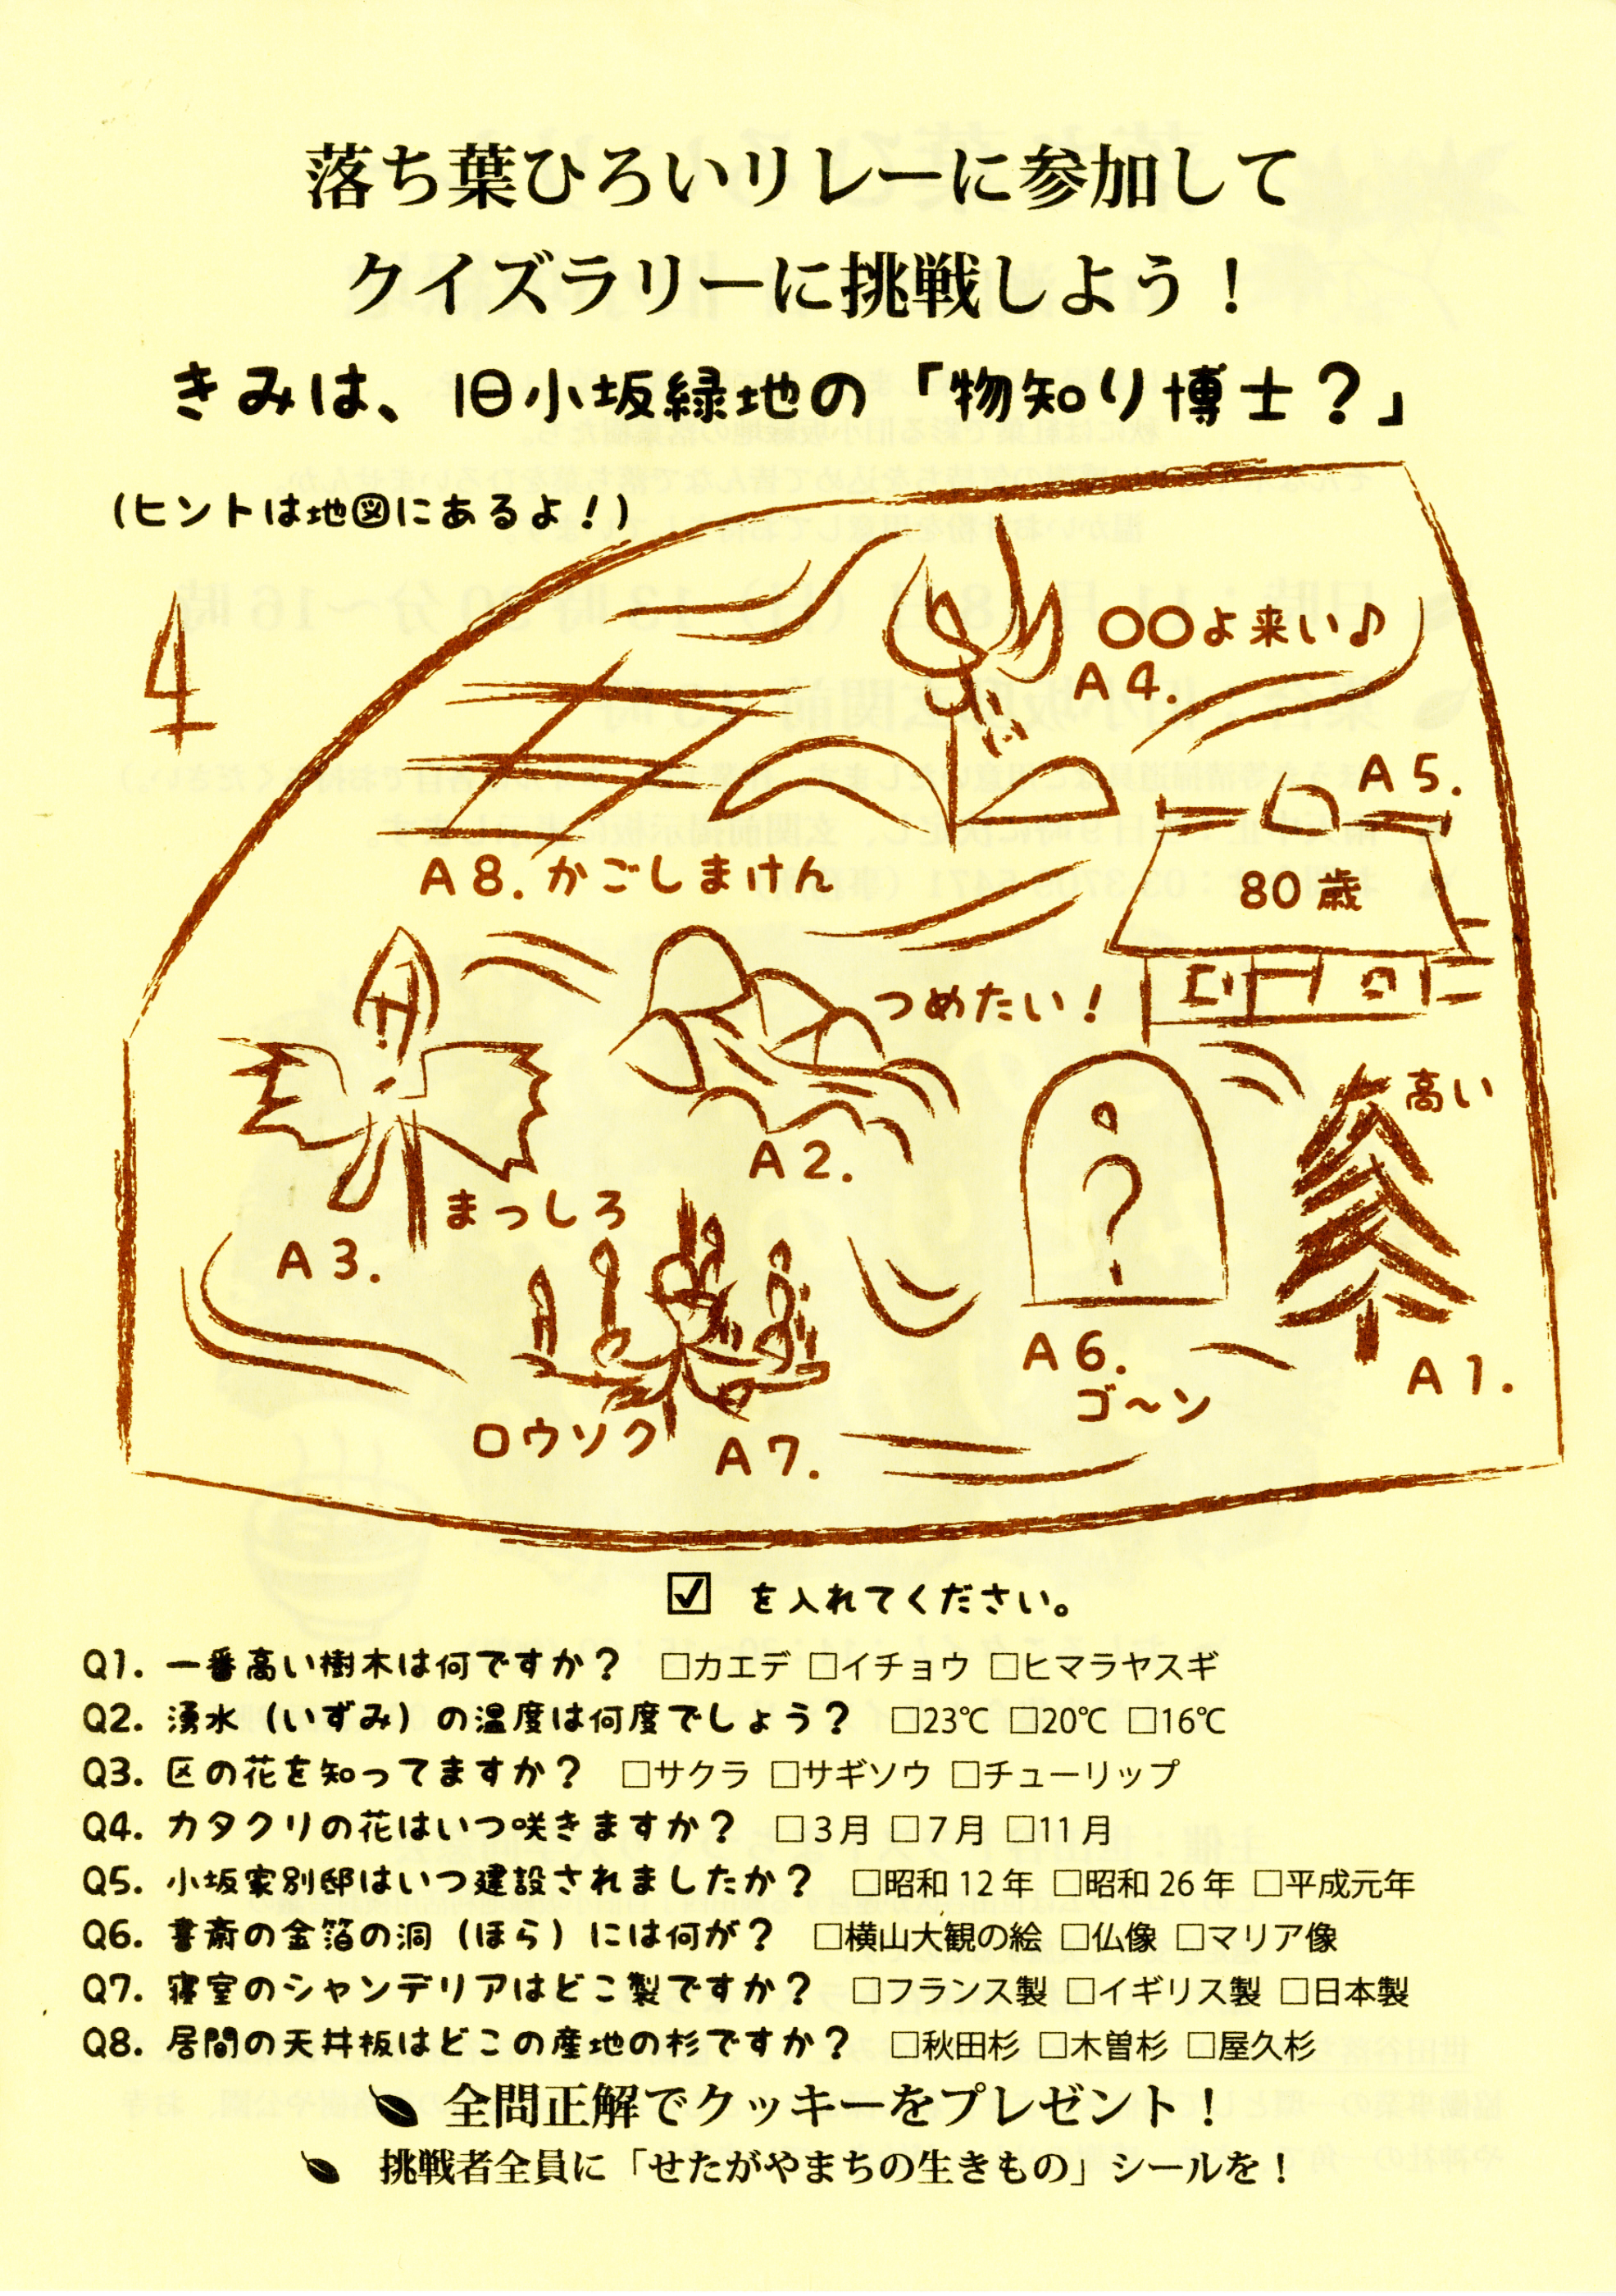 落ち葉ひろいリレーに参加して
クイズラリーに挑戦しよう！
きみは、旧小坂緑地の「物知り博士？」
(ヒントは地図にあるよ！)
○○よ来い♪
A4.
A5.
80歳
A8. かごしまけん
つめたい！
高い
A2.
まっしろ
A3.
A6.
ゴ〜ン
A1.
ロウソク
A7.
☑ を入れてください。
Q1. 一番高い樹木は何ですか？ □カエデ □イチョウ □ヒマラヤスギ
Q2. 湧水（いずみ）の温度は何度でしょう？ □23℃ □20℃ □16℃
Q3. 区の花を知ってますか？ □サクラ □サギソウ □チューリップ
Q4. カタクリの花はいつ咲きますか？ □3月 □7月 □11月
Q5. 小坂家別邸はいつ建設されましたか？ □昭和12年 □昭和26年 □平成元年
Q6. 書斎の金箔の洞（ほら）には何が？ □横山大観の絵 □仏像 □マリア像
Q7. 寝室のシャンデリアはどこ製ですか？ □フランス製 □イギリス製 □日本製
Q8. 居間の天井板はどこの産地の杉ですか？ □秋田杉 □木曽杉 □屋久杉
全問正解でクッキーをプレゼント！
挑戦者全員に「せたがやまちの生きもの」シールを！